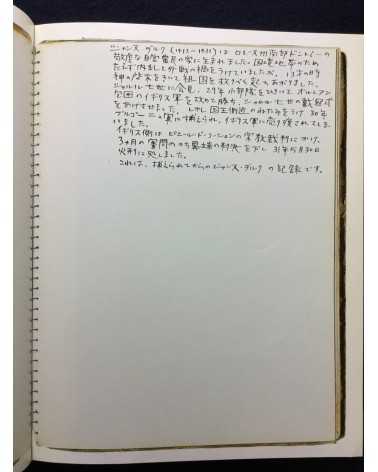 ジャンヌ ダルク (1412〜1431)は ロレーヌ州南部ドンレミーの
敬虔な自営農民の家に生まれました。国境地帯のため
たえず内乱と外戦の禍をうけていましたが、13才の時
神の啓示をきいて、祖国を救うべく起ちあがります。
シャルル七世に会見、29年小部隊をひきいて、オルレアン
包囲のイギリス軍を攻めて勝ち、シャルル七世の戴冠式
をあげさせました。しかし国王側近のねたみをうけ 30年
ブルゴーニュ軍に捕えられ、イギリス軍に売り渡されてしま
いました。
イギリス側は ピエール・ド・コーションの宗教裁判にかけ、
3ヵ月の審問ののち異端の判決を下し 31年5月30日
火刑に処しました。
これは、捕えられてからのジャンヌ・ダルクの記録です。